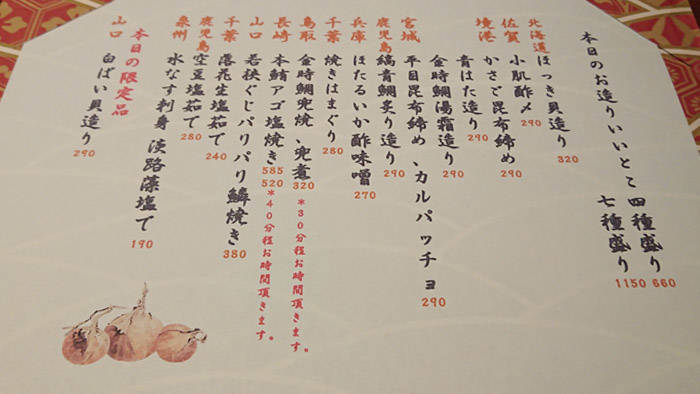 本日のお造りいいとこ 四種盛り 660
七種盛り 1150
北海道 ほっき貝造り 320
佐賀 小肌酢〆 290
境港 かさご昆布締め 290
青はた造り 290
金時鯛湯霜造り 290
宮城 平目昆布締め、カルパッチョ 290
鹿児島 縞青鯛炙り造り 290
兵庫 ほたるいか酢味噌 270
千葉 焼きはまぐり 280
鳥取 金時鯛兜焼、兜煮 320 *30分程お時間頂きます。
長崎 本鯖アゴ塩焼き 585 520 *40分程お時間頂きます。
山口 若狭ぐじパリパリ鱗焼き 380
千葉 落花生塩茹で 240
鹿児島 空豆塩茹で 280
泉州 水なす刺身 淡路藻塩で 190
本日の限定品
山口 白ばい貝造り 290